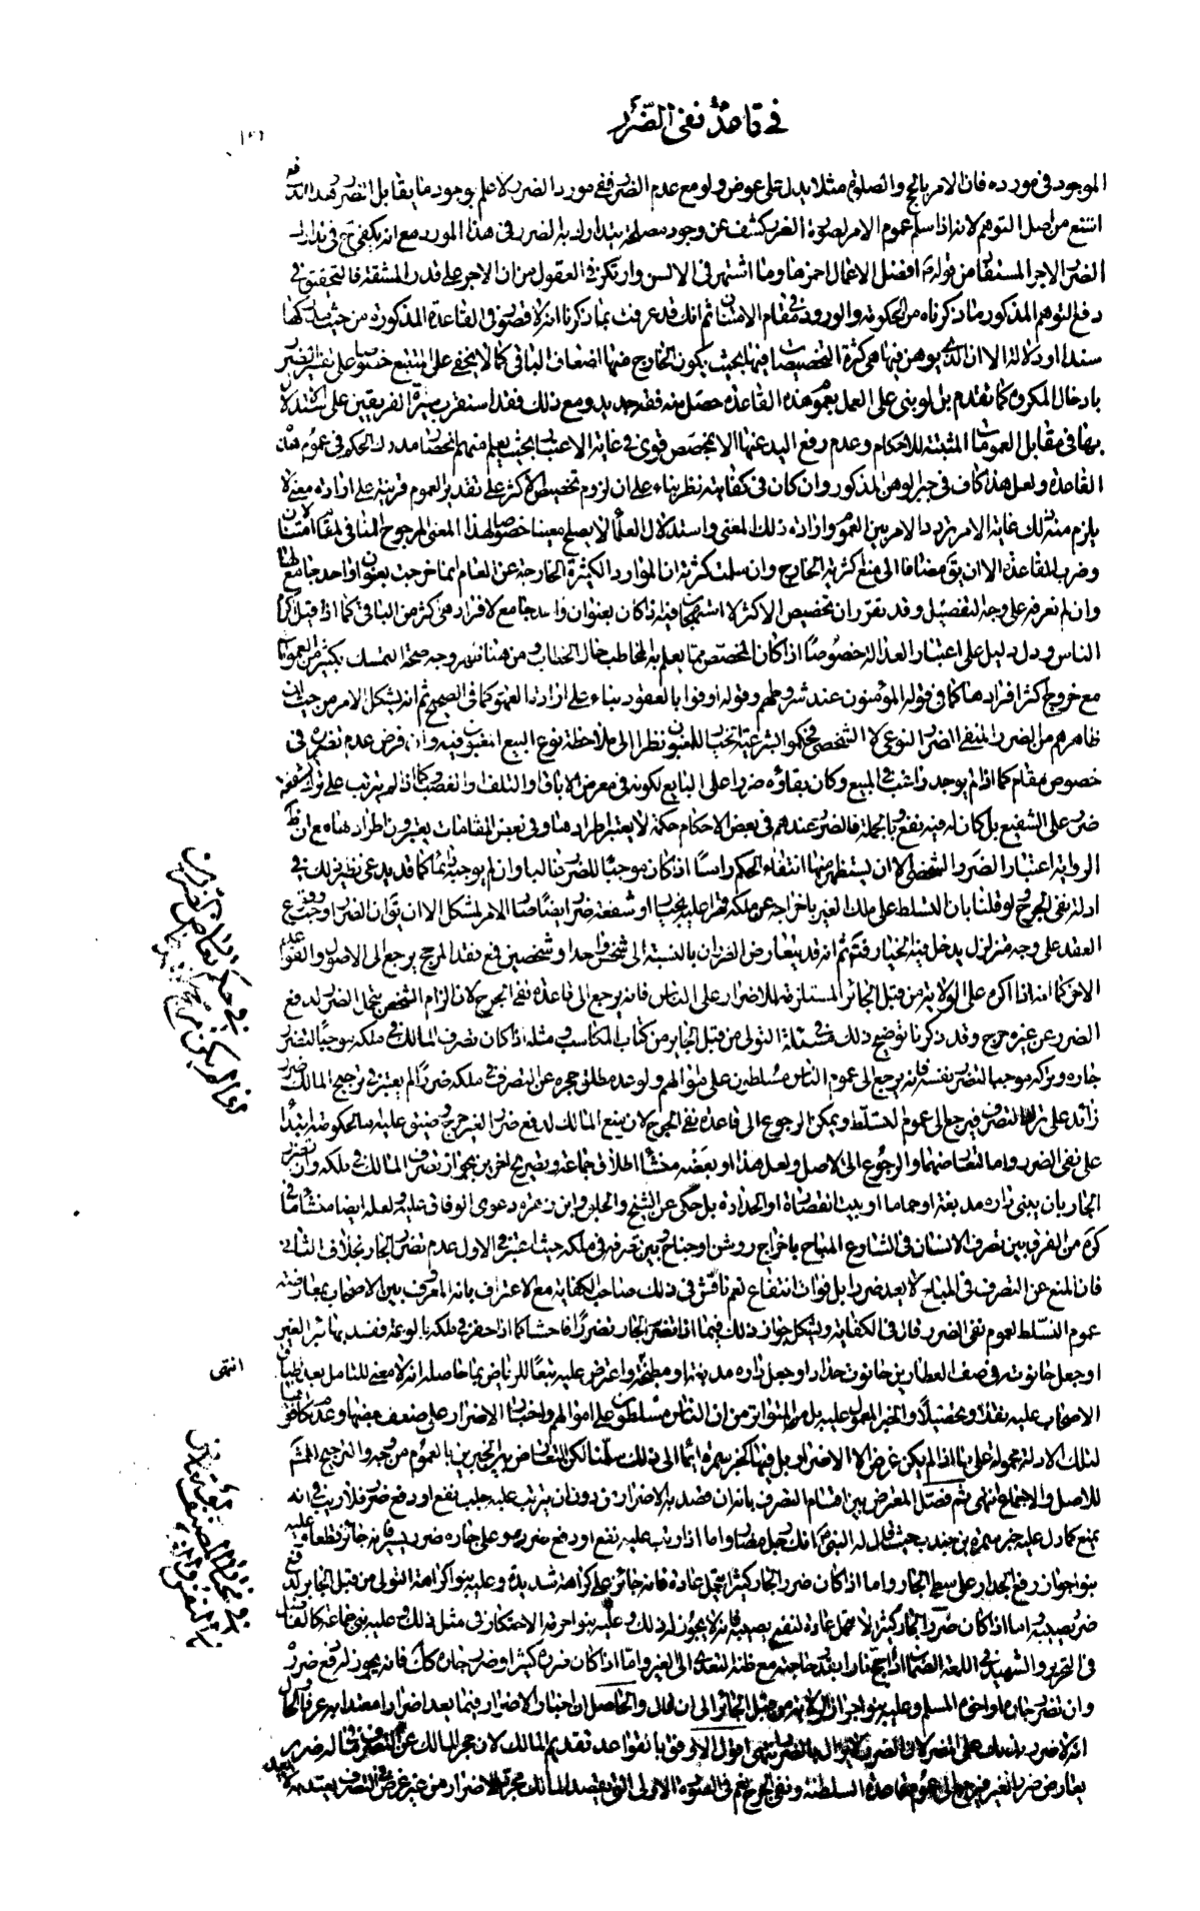 في قاعدة نفي الضّرر
الموجود في مورده فان الامر بالحج والصلوة مثلا يدل على عوض ولو مع عدم الضرر ففي مورد الضرر لا علم بوجود ما يقابل الضرر وهذا الدفع
اشنع من اصل التوهم لانه اذا سلم عموم الامر لصورة الضرر كشف عن وجود مصلحة يتدارك بها الضرر في هذا المورد مع انه يكفي ح في تدارك
الضرر الاجر المستفاد من قوله افضل الاعمال احمزها وما اشتهر في الالسن وارتكز في العقول من ان الاجر على قدر المشقة فالتحقيق في
دفع التوهم المذكور ما ذكرناه من الحكومة والورود في مقام الامتنان ثم انك قد عرفت بما ذكرنا انه لا قصور في القاعدة المذكورة من حيث مدركها
سندا او دلالة الا ان الذي يوهن فيها هي كثرة التخصيصات فيها بحيث يكون الخارج منها اضعاف الباقي كما لا يخفى على المتتبع خصوصا على تفسير الضرر
بادخال المكروه كما تقدم بل لو بني على العمل بعموم هذه القاعدة حصل منه فقه جديد ومع ذلك فقد استقرت سيرة الفريقين على الاستدلال
بها في مقابل العمومات المثبتة للاحكام وعدم رفع اليد عنها الا بمخصص قوي في غاية الاعتبار بحيث يعلم منهم انحصار مدرك الحكم في عموم هذه
القاعدة ولعل هذا كاف في جبر الوهن المذكور وان كان في كفايته نظر بناء على ان لزوم تخصيص الاكثر على تقدير العموم قرينة على ارادة معنى لا
يلزم منه ذلك غاية الامر تردد الامر بين العموم وارادة ذلك المعنى واستدلال العلماء لا يصلح معينا خصوصا لهذا المعنى المرجوح المنافي لمقام الامتنان
وضرب القاعدة الا ان يق مضافا الى منع اكثرية الخارج وان سلمت كثرته ان الموارد الكثيرة الخارجة عن العام انما خرجت بعنوان واحد جامع لها
وان لم نعرفه على وجه التفصيل وقد تقرر ان تخصيص الاكثر لا استهجان فيه اذا كان بعنوان واحد جامع لافراد هي اكثر من الباقي كما اذا قيل اكرم
الناس ودل دليل على اعتبار العدالة خصوصًا اذا كان المخصص مما يعلم به المخاطب حال الخطاب ومن هنا ظهر وجه صحة التمسك بكثير من العمومات
مع خروج اكثر افرادها كما في قوله المؤمنون عند شروطهم وقوله اوفوا بالعقود بناء على ارادة العموم كما في الصحيح ثم انه يشكل الامر من حيث ان
ظاهرهم من الضرر المنفي الضرر النوعي لا الشخصي فحكموا بشرعية الخيار للمغبون نظرا الى ملاحظة نوع البيع المغبون فيه وان فرض عدم تضرره في
خصوص مقام كما اذا لم يوجد راغب في المبيع وكان بقاؤه ضررا على البايع لكونه في معرض الاباق والتلف والغصب وكما اذا لم يترتب على ترك الشفعة
ضرر على الشفيع بل كان له فيه نفع وبالجملة فالضرر عندهم في بعض الاحكام حكمة لا يعتبر اطرادها وفي بعض المقامات يعتبرون اطرادها مع ان ظ
الرواية اعتبار الضرر الشخصي الا ان يستظهر منها انتفاء الحكم راسًا اذا كان موجبًا للضرر غالبا وان لم يوجبه دائما كما قد يدعى نظير ذلك في
ادلة نفي الحرج ولو قلنا بان التسلط على ملك الغير باخراجه عن ملكه قهرا عليه بخيار او شفعة ضرر ايضا صار الامر اشكل الا ان يق ان الضرر اوجب وقوع
العقد على وجه متزلزل يدخل فيه الخيار فتم ثم انه قد يتعارض الضرران بالنسبة الى شخص واحد او شخصين فمع فقد المرجح يرجع الى الاصول والقواعد
الاخر كما انه اذا اكره على الولاية من قبل الجائر المستلزمة للاضرار على الناس فانه يرجع الى قاعدة نفي الحرج لان الزام الشخص بتحمل الضرر لدفع
الضرر عن غيره حرج وقد ذكرنا توضيح ذلك في مسئلة التولي من قبل الجاير من كتاب المكاسب ومثله اذا كان تصرف المالك في ملكه موجبًا لتضرر
جاره وتركه موجبا لتضرر نفسه فانه يرجع الى عموم الناس مسلطون على اموالهم ولو عد مطلق حجره عن التصرف في ملكه ضررًا لم يعتبر في ترجيح المالك ضرر
زائد على ترك التصرف فيرجع الى عموم التسلط ويمكن الرجوع الى قاعدة نفي الحرج لان منع المالك لدفع ضرر الغير حرج وضيق عليه اما لحكومته ابتدأ
على نفي الضرر واما لتعارضهما والرجوع الى الاصل ولعل هذا او بعضه منشأ اطلاق جماعة وتصريح اخرين بجواز تصرف المالك في ملكه وان تضرر
الجار بان يبني داره مدبغة او حماما او بيت القصارة او الحدادة بل حكي عن الشيخ والحلبي وابن زهرة دعوى الوفاق عليه ولعله ايضا منشأ ما في
كرة من الفرق بين تصرف الانسان في الشارع المباح باخراج روشن او جناح وبين تصرفه في ملكه حيث اعتبر في الاول عدم تضرر الجار بخلاف الثاني
فان المنع عن التصرف في المباح لا يعد ضررا بل فوات انتفاع نعم ناقش في ذلك صاحب الكفاية مع الاعتراف بانه المعروف بين الاصحاب بمعارضة
عموم التسلط لعموم نفي الضرر قال في الكفاية ويشكل جواز ذلك فيما اذا تضرر الجار تضررًا فاحشا كما اذا حفر في ملكه بالوعة ففسد بها بئر الغير
او جعل حانوته في صف العطارين حانوت حداد او جعل داره مدبغة او مطبخة واعترض عليه تبعًا للرياض بما حاصله انه لا معنى للتامل بعد اطباق
انتهى
الاصحاب عليه نقلا وتحصيلًا والخبر المعمول عليه بل المتواتر من ان الناس مسلطون على اموالهم واخبار الاضرار على ضعف بعضها وعدم تكافؤها
لتلك الادلة محمولة على ما اذا لم يكن غرض الا الاضرار بل فيها كخبر سمرة ايماء الى ذلك سلمنا لكن التعارض بين الخبرين بالعموم من وجه والترجيح للمشهور
للاصل والاجماع انتهى ثم فصل المعترض بين اقسام التصرف بانه ان قصد به الاضرار من دون ان يترتب عليه جلب نفع او دفع ضرر فلا ريب في انه
يمنع كما دل عليه خبر سمرة بن جندب حيث قال له النبي انك رجل مضار واما اذا ترتب عليه نفع او دفع ضرر وعلى جاره ضرر يسير فانه جائز قطعا وعليه
بنوا جواز رفع الجدار على سطح الجار واما اذا كان ضرر الجار كثيرا يتحمل عادة فانه جائز على كراهة شديدة وعليه بنوا كراهة التولي من قبل الجاير لدفع
ضرر يصيبه واما اذا كان ضرر الجار كثيرا لا يتحمل عادة لنفع يصيبه فانه لا يجوز له ذلك وعليه بنوا حرمة الاحتكار في مثل ذلك وعليه بنى جماعة كالفاضل
في التحرير والشهيد في اللمعة الضمان اذا اجج نارا بقدر حاجته مع ظنه التعدي الى الغير واما اذا كان ضرره كثيرا وضرر جاره كك فانه يجوز له دفع ضرره
وان تضرر جاره او اخوه المسلم وعليه بنوا جواز الولاية من قبل الجائر الى ان قال والحاصل ان اخبار الاضرار فيما يعد اضرارا معتدا به عرفا والحال
انه لا ضرر بذلك على المضر لان الضرر لا يزال بالضرر انتهى اقول الاوفق بالقواعد تقديم المالك لان حجر المالك عن التصرف في ماله ضرر
يعارض ضرر الغير فيرجع الى عموم قاعدة السلطنة ونفي الحرج نعم في الصورة الاولى التي يقصد المالك مجرد الاضرار من غير غرض في التصرف يعتد به